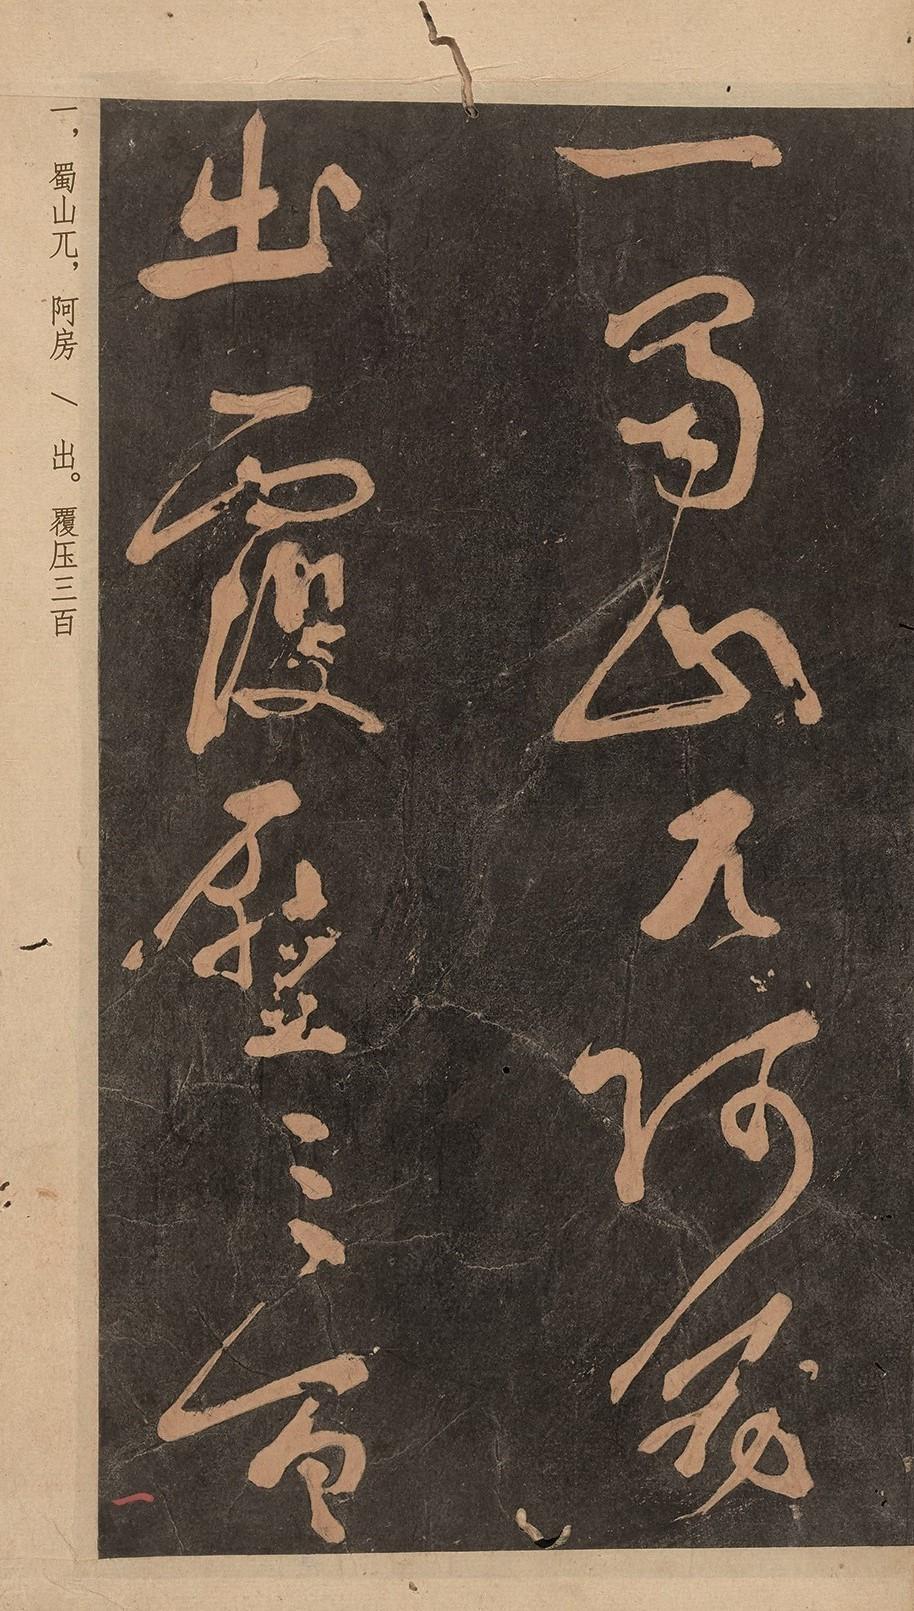 一蜀山兀阿房
出覆压三百
一，蜀山兀，阿房 \ 出。覆压三百